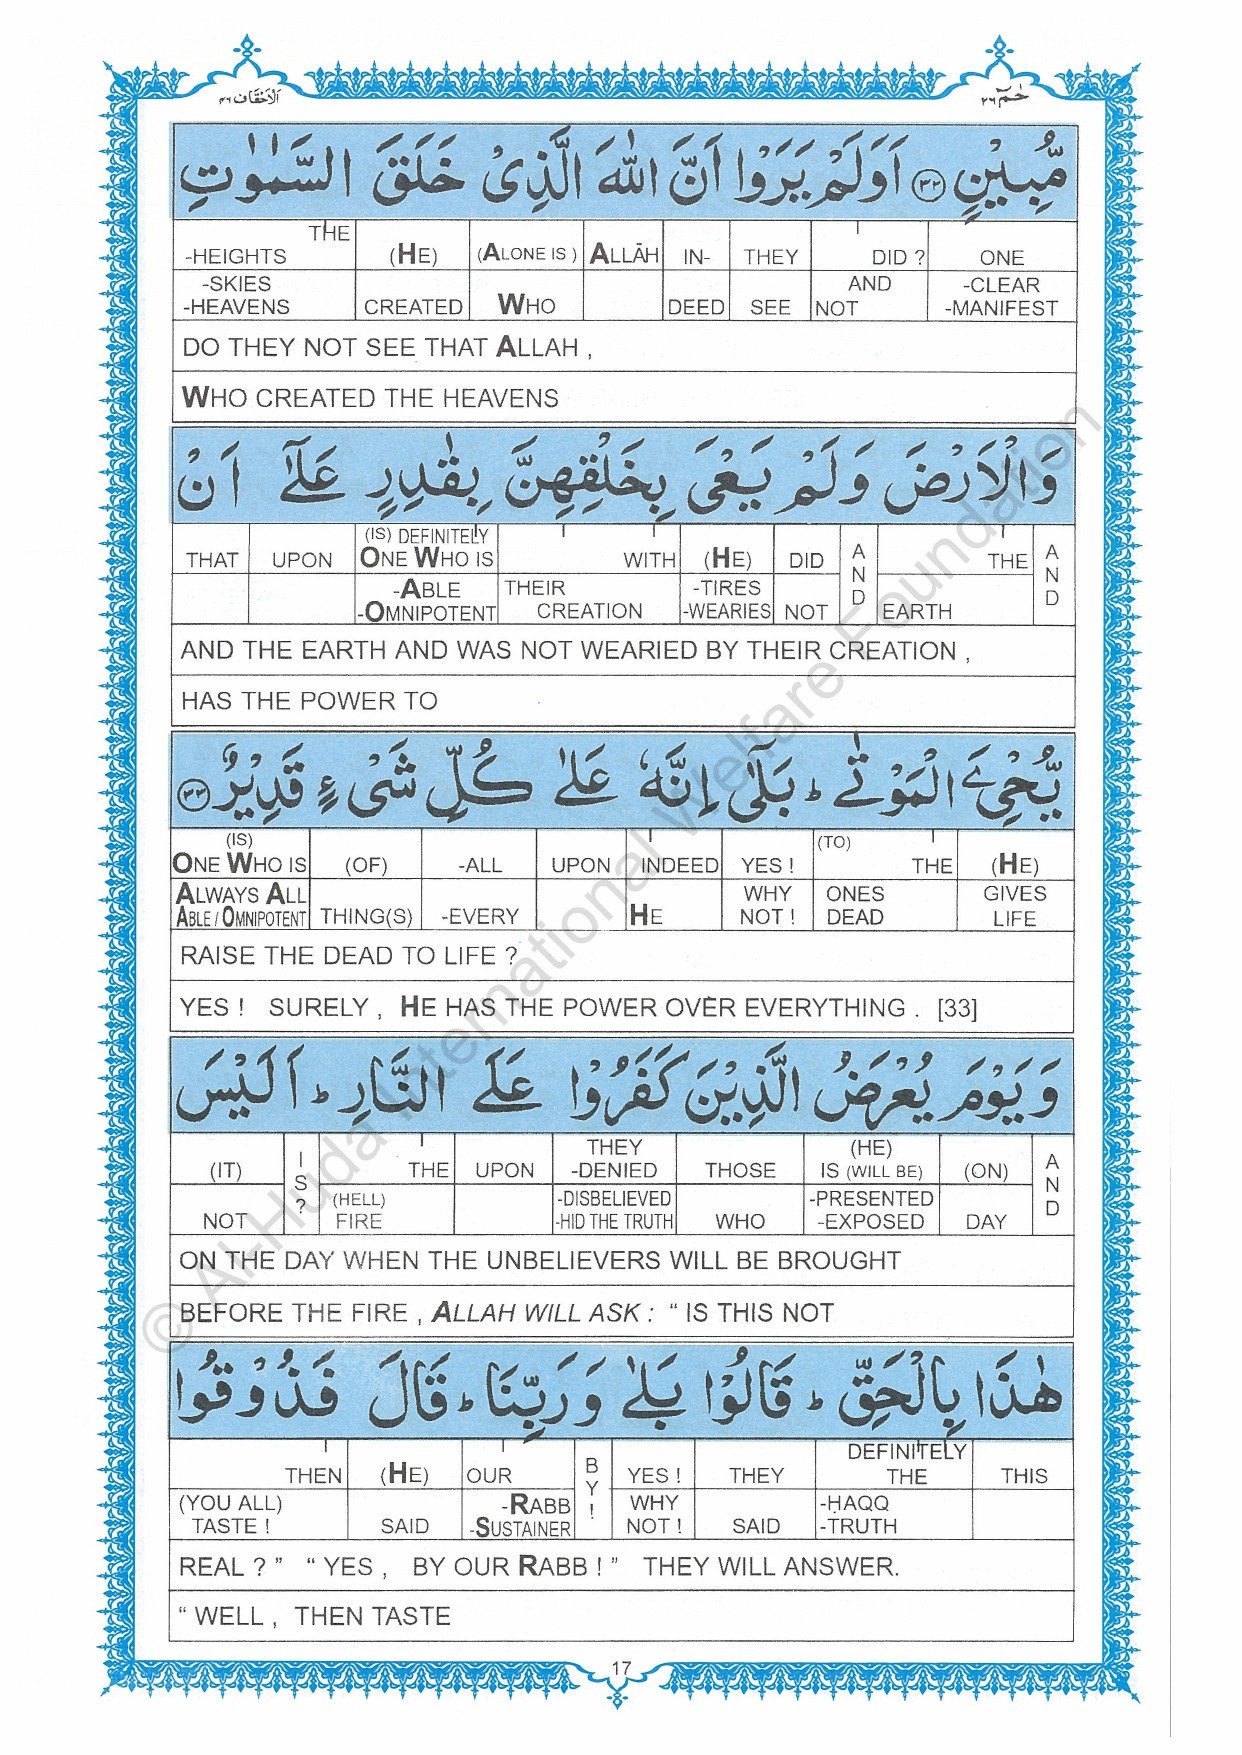 الاحقاف ٤٦
حٰمٓ ٢٦
مُّبِيْنٍ ﴿٣٢﴾ اَوَلَمْ يَرَوْا اَنَّ اللّٰهَ الَّذِىْ خَلَقَ السَّمٰوٰتِ
THE -HEIGHTS (HE) (ALONE IS ) ALLĀH IN- THEY DID ? ONE
-SKIES -HEAVENS CREATED WHO DEED SEE AND NOT -CLEAR -MANIFEST
DO THEY NOT SEE THAT ALLAH ,
WHO CREATED THE HEAVENS
وَالْاَرْضَ وَلَمْ يَعْىَ بِخَلْقِهِنَّ بِقٰدِرٍ عَلٰٓى اَنْ
THAT UPON (IS) DEFINITELY ONE WHO IS WITH (HE) DID AND THE AND
-ABLE -OMNIPOTENT THEIR CREATION -TIRES -WEARIES NOT EARTH
AND THE EARTH AND WAS NOT WEARIED BY THEIR CREATION ,
HAS THE POWER TO
يُّحْيِۦَ الْمَوْتٰى ؕ بَلٰٓى اِنَّهٗ عَلٰى كُلِّ شَىْءٍ قَدِيْرٌ ﴿٣٣﴾
(IS) ONE WHO IS (OF) -ALL UPON INDEED YES ! (TO) THE (HE)
ALWAYS ALL ABLE / OMNIPOTENT THING(S) -EVERY HE WHY NOT ! ONES DEAD GIVES LIFE
RAISE THE DEAD TO LIFE ?
YES ! SURELY , HE HAS THE POWER OVER EVERYTHING . [33]
وَيَوْمَ يُعْرَضُ الَّذِيْنَ كَفَرُوْا عَلَى النَّارِ ؕ اَلَيْسَ
(IT) IS? THE UPON THEY -DENIED THOSE (HE) IS (WILL BE) (ON) AND
NOT (HELL) FIRE -DISBELIEVED -HID THE TRUTH WHO -PRESENTED -EXPOSED DAY
ON THE DAY WHEN THE UNBELIEVERS WILL BE BROUGHT
BEFORE THE FIRE , ALLAH WILL ASK : “ IS THIS NOT
هٰذَا بِالْحَقِّ ؕ قَالُوْا بَلٰى وَرَبِّنَا ؕ قَالَ فَذُوْقُوا
THEN (HE) OUR BY! YES ! THEY DEFINITELY THE THIS
(YOU ALL) TASTE ! SAID -RABB -SUSTAINER WHY NOT ! SAID -ḤAQQ -TRUTH
REAL ? ” “ YES , BY OUR RABB ! ” THEY WILL ANSWER.
“ WELL , THEN TASTE
17
© Al-Huda International Welfare Foundation